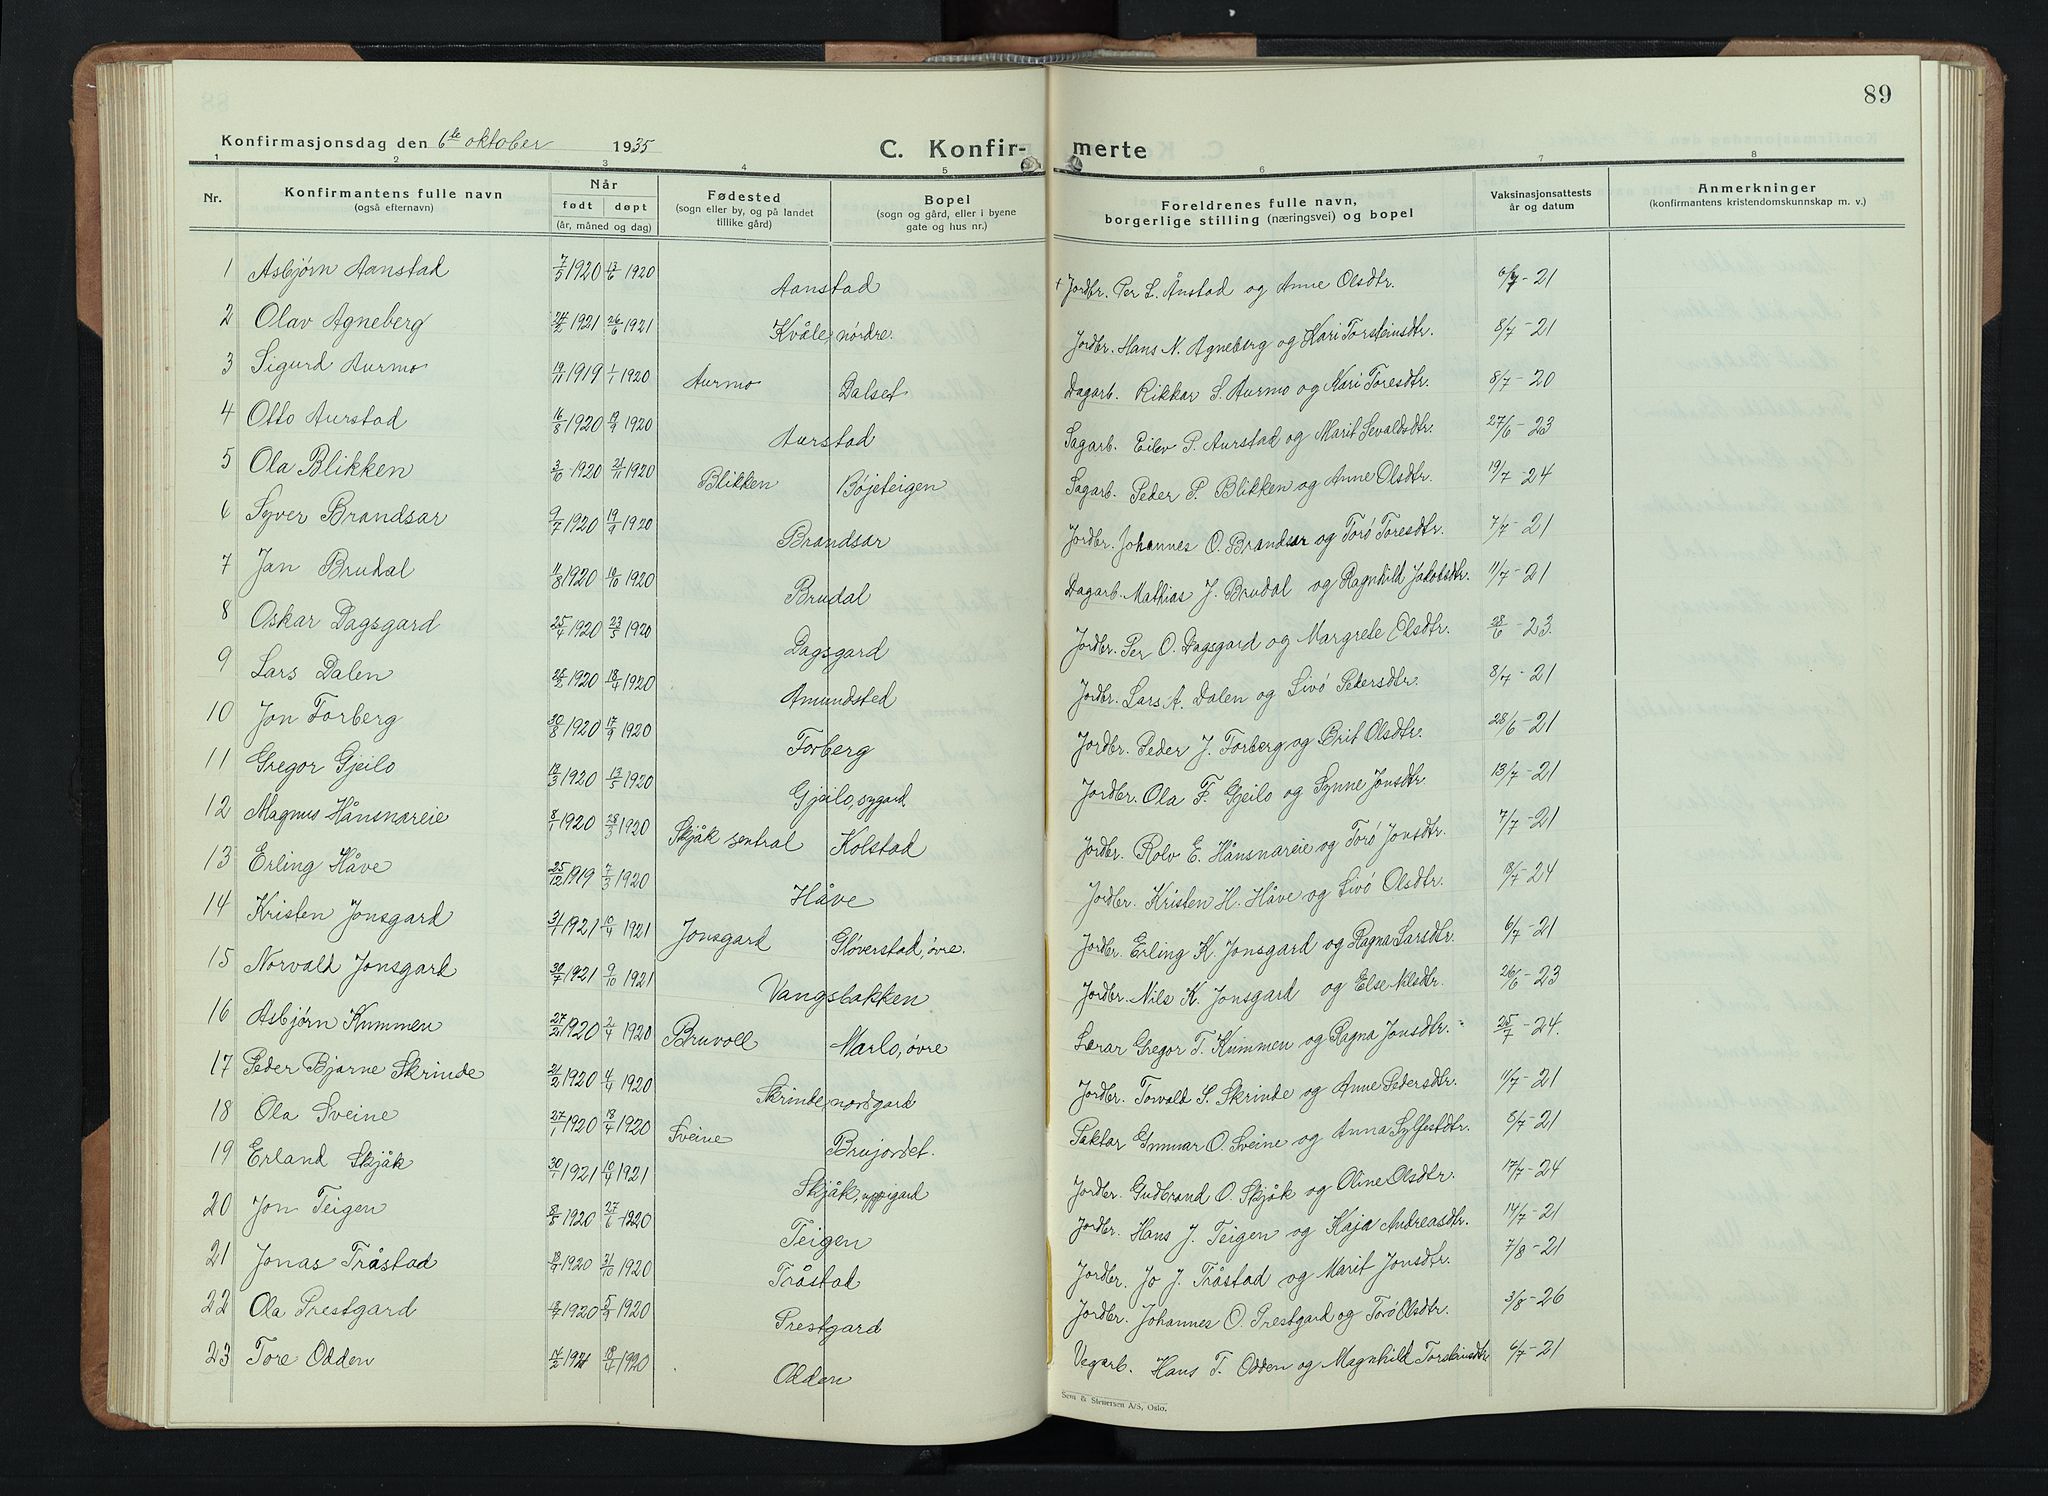 89
Konfirmasjonsdag den 6te oktober 1935
C. Konfir- merte
1 2 3 4 5 6 7 8
Nr. Konfirmantens fulle navn (også efternavn) Når født døpt (år, måned og dag) Fødested (sogn eller by, og på landet tillike gård) Bopel (sogn og gård, eller i byene gate og hus nr.) Foreldrenes fulle navn, borgerlige stilling (næringsvei) og bopel Vaksinasjonsattests år og datum Anmerkninger (konfirmantens kristendomskunnskap m. v.)
1 Asbjørn Aanstad 7/5 1920 13/6 1920 Aanstad + Jordbr. Per L. Ånstad og Anne Olsdtr. 6/7-21
2 Olav Agneberg 24/2 1921 26/6 1921 Kvåle, nordre. Jordbr. Hans N. Agneberg og Kari Torsteinsdtr. 8/7-21
3 Sigurd Aurmo 19/11 1919 1/1 1920 Aurmo Dalset Dagarb. Rikkar S. Aurmo og Mari Toresdtr. 8/7-20
4 Otto Aurstad 16/8 1920 19/9 1920 Aurstad Sagarb. Eilev P. Aurstad og Marit Sevaldsdtr. 27/6-23
5 Ola Blikken 3/10 1920 21/11 1920 Blikken Bøjeteigen Sagarb. Peder P. Blikken og Anne Olsdtr. 19/7-24
6 Syver Brandsar 9/7 1920 19/9 1920 Brandsar Jordbr. Johannes O. Brandsar og Torø Toresdtr. 7/7-21
7 Jan Brudal 11/8 1920 10/10 1920 Brudal Dagarb. Mathias J. Brudal og Ragnhild Jakobsdtr. 11/7-21
8 Oskar Dagsgard 25/4 1920 23/5 1920 Dagsgard Jordbr. Per O. Dagsgard og Margrete Olsdtr. 28/6-23
9 Lars Dalen 1920 18/4 1920 Amundsted Jordbr. Lars A. Dalen og Sivø Pedersdtr. 8/7-21
10 Jon Forberg 30/8 1920 17/9 1920 Forberg Jordbr. Peder J. Forberg og Brit Olsdtr. 28/6-21
11 Gregor Gjeilo 12/3 1920 13/5 1920 Gjeilo, sygard Jordbr. Ola F. Gjeilo og Synne Jonsdtr. 13/7-21
12 Magnus Hånsnareie 8/1 1920 28/3 1920 Skjåk sentral Kolstad Jordbr. Rolv E. Hånsnareie og Torø Jonsdtr. 7/7-21
13 Erling Håve 25/12 1919 7/3 1920 Håve Jordbr. Kristen H. Håve og Sivø Olsdtr. 8/7-24
14 Kristen Jonsgard 3/1 1921 10/4 1921 Jonsgard Gloverstad, øvre. Jordbr. Erling K. Jonsgard og Ragna Larsdtr. 6/7-21
15 Norvald Jonsgard 30/7 1921 9/10 1921 Vangsbakken Jordbr. Nils K. Jonsgard og Else Nilsdtr. 26/6-23
16 Asbjørn Kummen 27/2 1920 2/4 1920 Bruvoll Marlo, øvre Lærar Gregor T. Kummen og Ragna Jonsdtr. 25/7-24.
17 Peder Bjarne Skrinde 21/2 1920 4/4 1920 Skrinde, nordgard Jordbr. Torvald S. Skrinde og Anne Pedersdtr. 11/7-21
18 Ola Sveine 27/1 1920 18/4 1920 Sveine Brujordet. Paktar Gunnar O. Sveine og Anna Sylfestdtr. 8/7-21
19 Erland Skjåk 30/1 1921 10/4 1921 Skjåk, uppigard Jordbr. Gudbrand O. Skjåk og Oline Olsdtr. 17/7-24
20 Jon Teigen 8/5 1920 27/6 1920 Teigen Jordbr. Hans J. Teigen og Kaja Andreasdtr. 14/7-21
21 Jonas Tråstad 1920 31/10 1920 Tråstad Jordbr. Jo J. Tråstad og Marit Jonsdtr. 7/8-21
22 Ola Prestgard 1920 5/9 1920 Prestgard Jordbr. Johannes O. Prestgard og Torø Olsdtr. 3/8-26
23 Tore Odden 17/2 18/4 1920 Odden Vegarb. Hans T. Odden og Magnhild Torsteinsdtr 6/7-21
Sem & Stenersen A/S, Oslo.